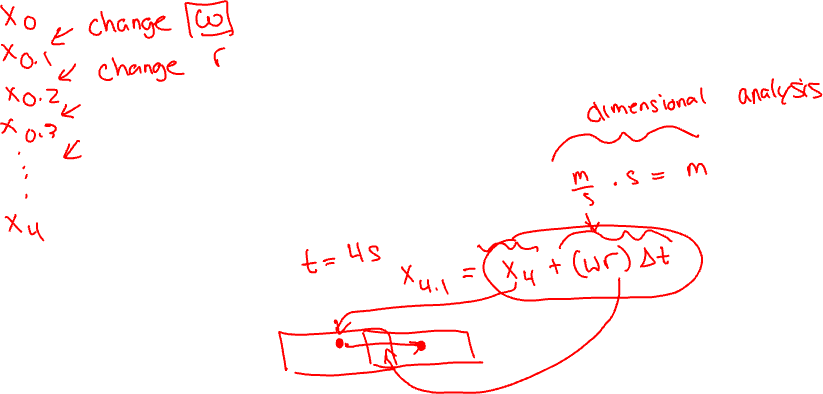 x₀ change ω
x₀.₁ change r
x₀.₂
x₀.₃
⋮
x₄
dimensional analysis
m/s · s = m
t = 4s
x₄.₁ = x₄ + (ωr) Δt